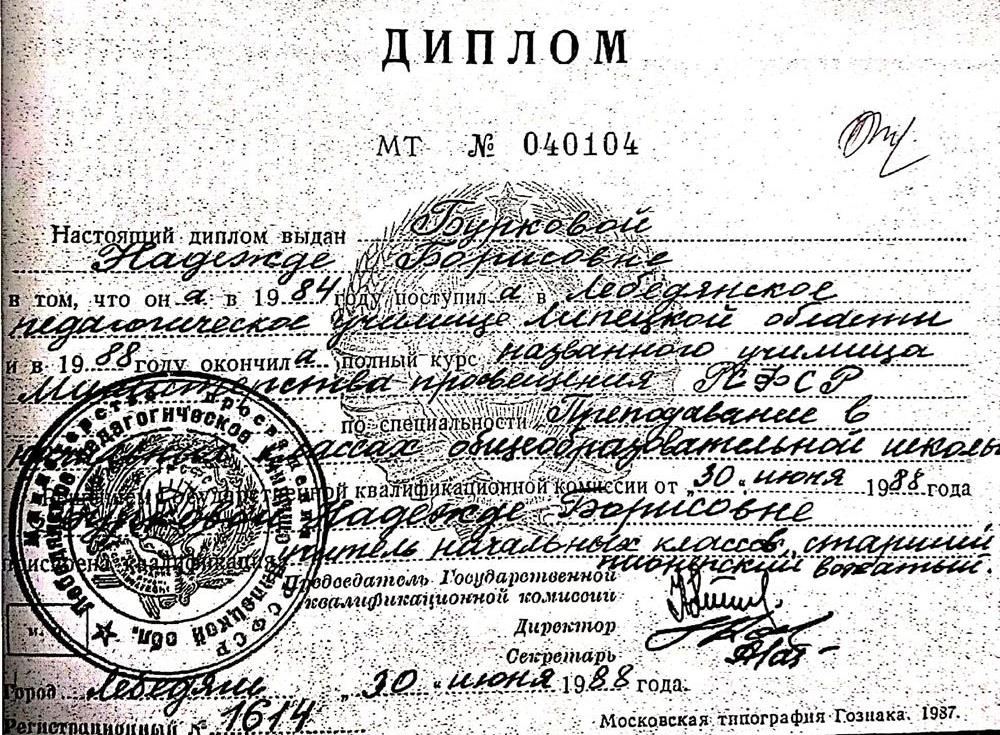 ДИПЛОМ
МТ № 040104
Настоящий диплом выдан Бурковой
Надежде Борисовне
в том, что он а в 1984 году поступил а в Лебедянское
педагогическое училище Липецкой области
и в 1988 году окончил а полный курс названного училища
Министерства просвещения РСФСР
по специальности Преподавание в
начальных классах общеобразовательной школы
Решением Государственной квалификационной комиссии от „30“ июня 1988 года
Бурковой Надежде Борисовне
присвоена квалификация учитель начальных классов, старший
пионерский вожатый.
Председатель Государственной
квалификационной комиссии
Директор
Секретарь
Министерство просвещения РСФСР
Лебедянское педагогическое училище Липецкой обл.
Город Лебедянь „30“ июня 1988 года.
Регистрационный № 1614
Московская типография Гознака. 1987.